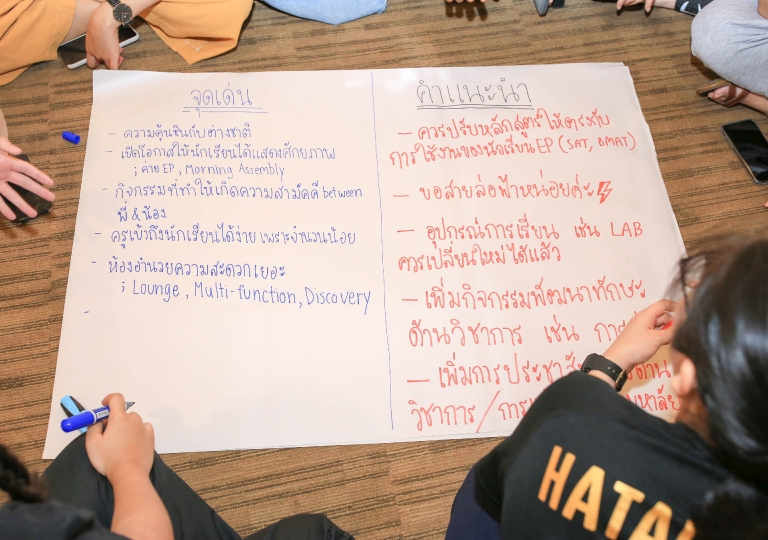 จุดเด่น
- ความคุ้นชินกับต่างชาติ
- เปิดโอกาสให้นักเรียนได้แสดงศักยภาพ
; ค่าย EP, Morning Assembly
- กิจกรรมที่ทำให้เกิดความสามัคคี between
พี่ & น้อง
- ครูเข้าถึงนักเรียนได้ง่าย เพราะจำนวนน้อย
- ห้องอำนวยความสะดวกเยอะ
; Lounge, Multi-function, Discovery
-
คำแนะนำ
- ควรปรับหลักสูตรให้ตรงกับ
การใช้งานของนักเรียน EP (SAT, BMAT)
- ขอสายล่อฟ้าหน่อยค่ะ
- อุปกรณ์การเรียน เช่น LAB
ควรเปลี่ยนใหม่ได้แล้ว
- เพิ่มกิจกรรมพัฒนาทักษะ
ด้านวิชาการ เช่น
- เพิ่มการ
วิชาการ /
HATA